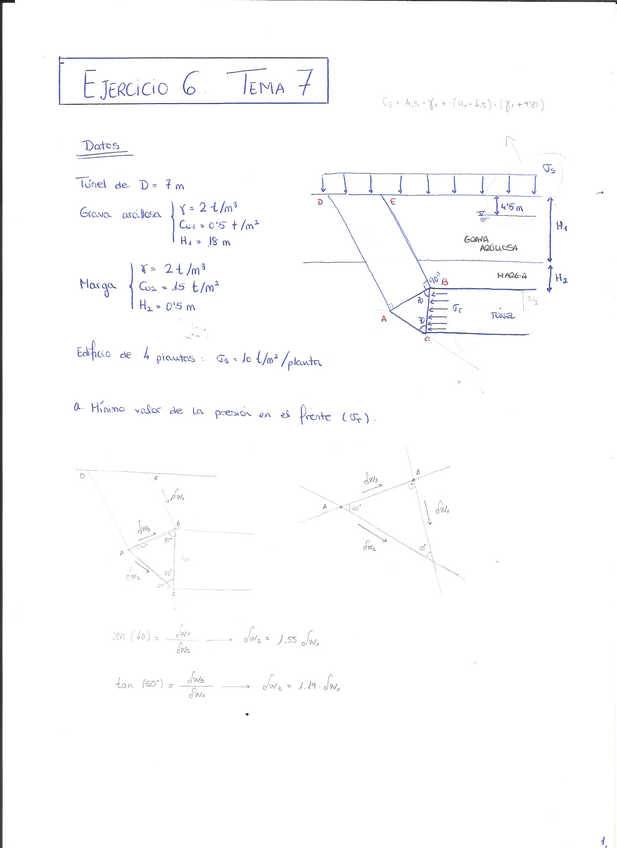 EJERCICIO 6. TEMA 7
Datos
Túnel de D = 7 m
Grava arcillosa
γ = 2 t/m³
Cu1 = 0'5 t/m²
H1 = 18 m
Marga
γ = 2 t/m³
Cu2 = 15 t/m²
H2 = 0'5 m
Edificio de 4 plantas: σs = 10 t/m²/planta
σs
D
E
4'5 m
H1
GRAVA
ARCILLOSA
MARGA
H2
90°
B
σT
TÚNEL
A
C
a. Mínimo valor de la presión en el frente (σT).
D
E
δw1
δw3
B
A
δw2
C
δw3
B
A
40°
δw1
δw2
50°
sen (40) = δw1 / δw2 → δw2 = 1.55 δw1
tan (50°) = δw3 / δw1 → δw3 = 1.19 · δw1
1.